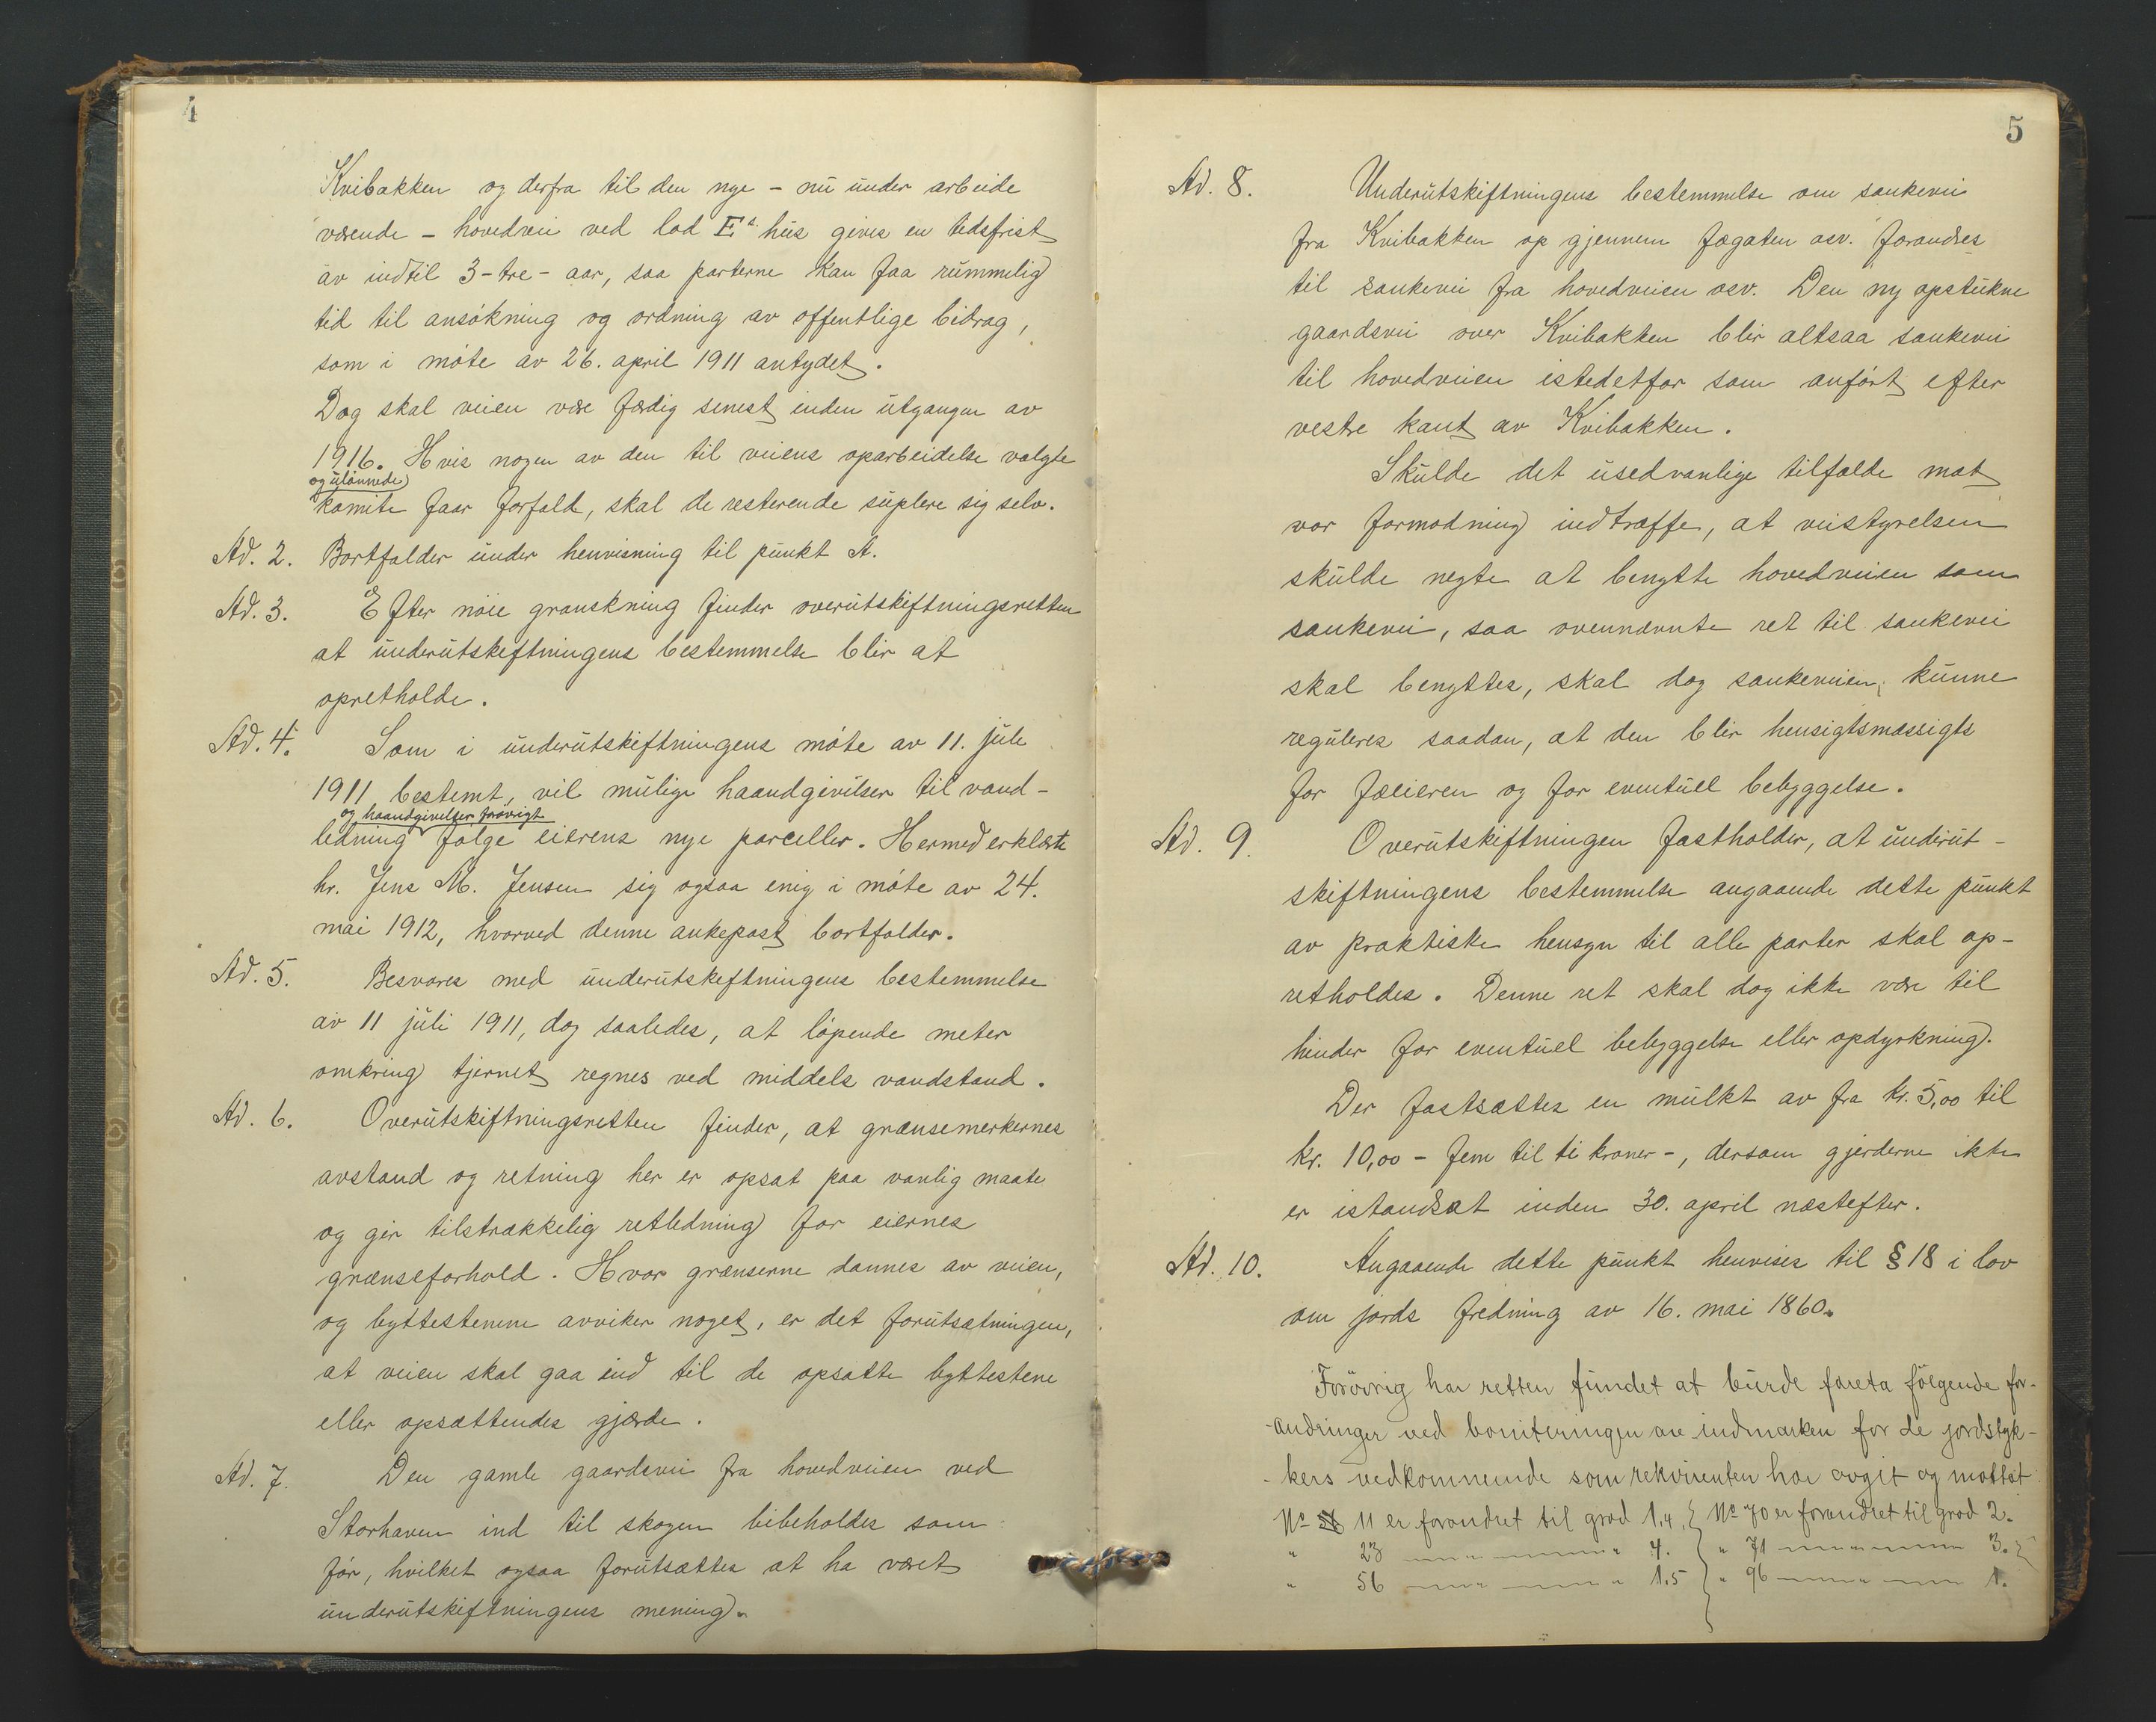 4
Kvibakken og derfra til den nye - nu under arbeide
værende - hovedvei ved lod Es. hus gives en tidsfrist
av indtil 3 - tre - aar, saa parterne kan faa rummelig
tid til ansøkning og ordning av offentlige bidrag,
som i møte av 26. april 1911 antydet.
Dog skal veien være færdig senest inden utgangen av
1916. Hvis nogen av den til veiens oparbeidelse valgte
og ulønnede
komite faar forfald, skal de resterende suplere sig selv.
Ad. 2. Bortfalder under henvisning til punkt A.
Ad. 3. Efter nøie granskning finder overutskiftningsretten
at underutskiftningens bestemmelse blir at
opretholde.
Ad. 4. Som i underutskiftningens møte av 11. juli
1911 bestemt, vil mulige haandgivelser til vand-
og haandgivelser forøvigt
ledning følge eierens nye parceller. Hermed erklærte
hr. Jens M. Jensen sig ogsaa enig i møte av 24.
mai 1912, hvorved denne ankepost bortfalder.
Ad. 5. Besvares med underutskiftningens bestemmelse
av 11 juli 1911, dog saaledes, at løpende meter
omkring tjernet regnes ved middels vandstand.
Ad. 6. Overutskiftningsretten finder, at grænsemerkernes
avstand og retning her er opsat paa vanlig maate
og gir tilstrækkelig retledning for eiernes
grænseforhold. Hvor grænserne dannes av veien,
og byttestenene avviker noget, er det forutsætningen,
at veien skal gaa ind til de opsatte byttestene
eller opsættendes gjærde.
Ad. 7. Den gamle gaardsvei fra hovedveien ved
Storhaven ind til skogen bibeholdes som
før, hvilket ogsaa forutsættes at ha været
underutskiftningens mening.
5
Ad. 8. Underutskiftningens bestemmelse om sankevei
fra Kvibakken op gjennem fægaten osv. forandres
til sankevei fra hovedveien osv. Den ny opstukne
gaardsvei over Kvibakken blir altsaa sankevei
til hovedveien istedetfor som anført efter
vestre kant av Kvibakken.
Skulde det usedvanlige tilfælde mot
vor formodning indtræffe, at veistyrelsen
skulde negte at benytte hovedveien som
sankevei, saa ovennævnte ret til sankevei
skal benyttes, skal dog sankeveien kunne
reguleres saadan, at den blir hensigtsmæssigts
for fæeieren og for eventuel bebyggelse.
Ad. 9. Overutskiftningen fastholder, at underut-
skiftningens bestemmelse angaaende dette punkt
av praktiske hensyn til alle parter skal op-
retholdes. Denne ret skal dog ikke være til
hinder for eventuel bebyggelse eller opdyrkning.
Der fastsættes en mulkt av fra kr. 5,00 til
kr. 10,00 - fem til ti kroner -, dersom gjerderne ikke
er istandsat inden 30. april næstefter.
Ad. 10. Angaaende dette punkt henvises til § 18 i lov
om jords fredning av 16. mai 1860.
Forøvrig har retten fundet at burde foreta følgende for-
-andringer ved boniteringen av indmarken for de jordstyk-
-kers vedkommende som rekvirenten har avgit og mottat
No 11 er forandret til grad 1,4. No 70 er forandret til grad 2.
" 23 " " 4. " 71 " " 3.
" 56 " " 1.5 " 96 " " 1.